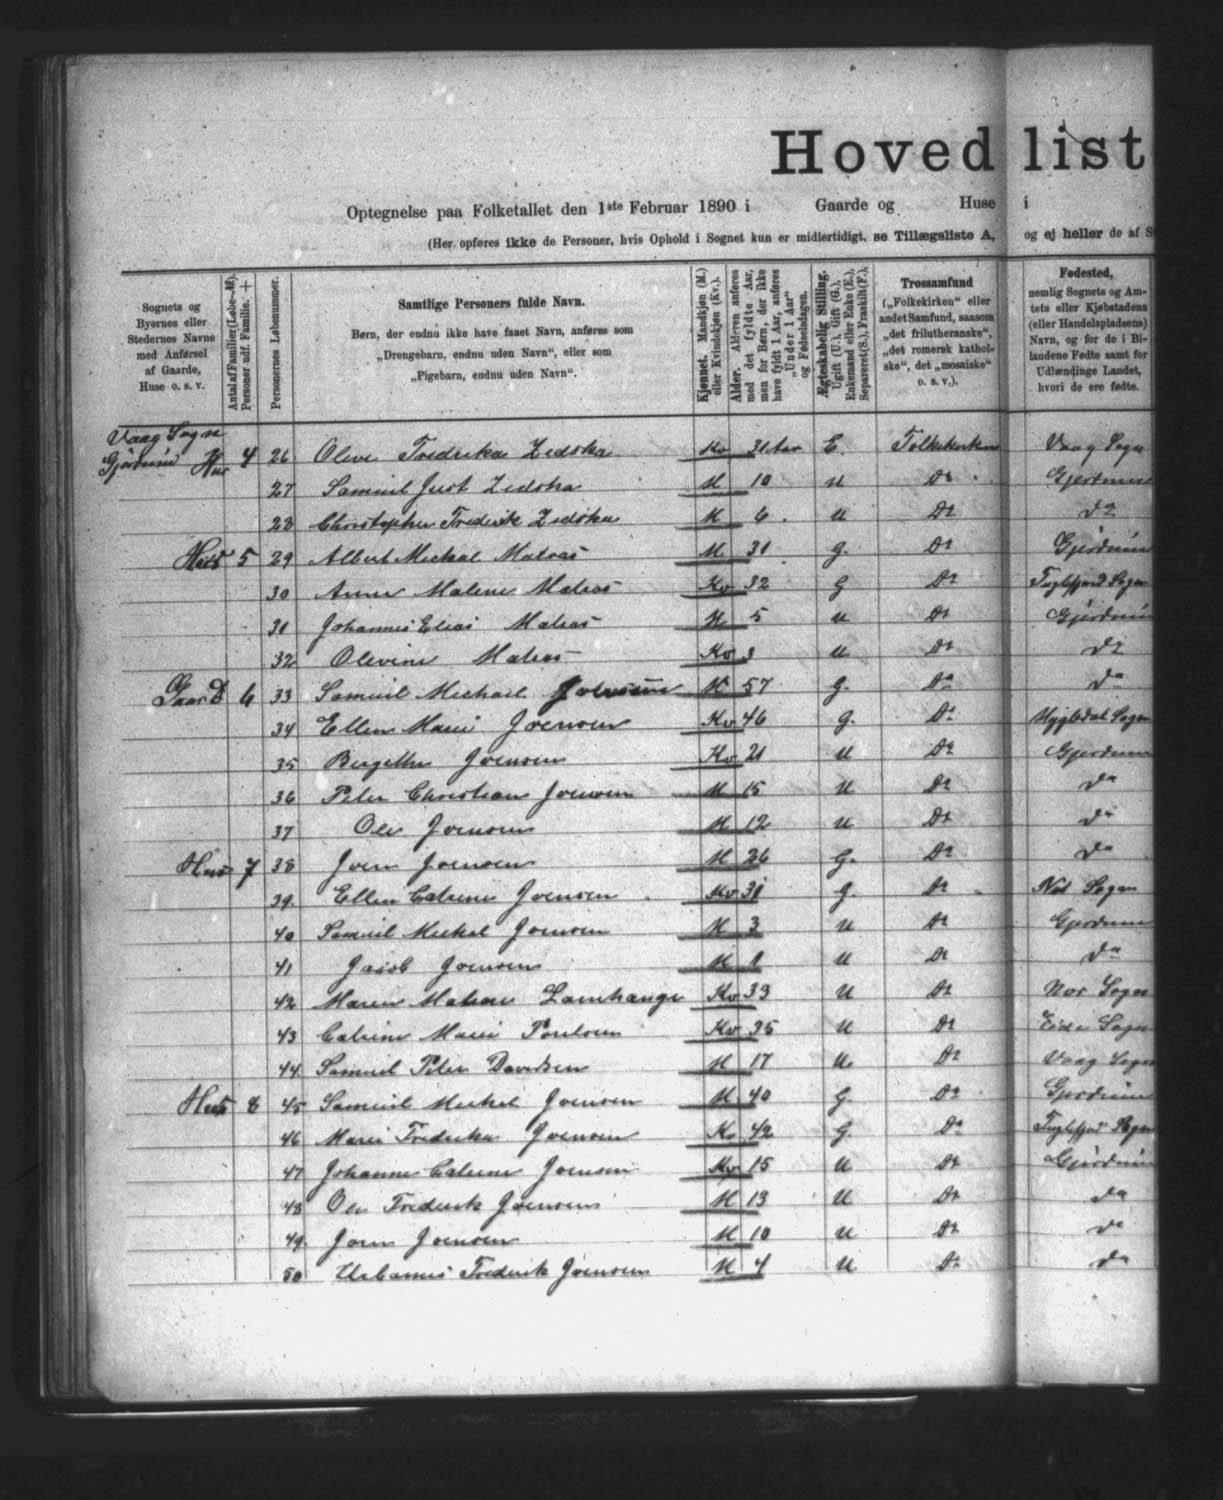 Hovedlist
Optegnelse paa Folketallet den 1ste Februar 1890 i Gaarde og Huse i
(Her opføres ikke de Personer, hvis Ophold i Sognet kun er midlertidigt, se Tillægsliste A, og ej heller de af S
Sognets og Byernes eller Stedernes Navne med Anførsel af Gaarde, Huse o. s. v.
Antal af Familier (Løbe-№).
Personer udf. Familie. +
Personernes Løbenummer.
Samtlige Personers fulde Navn.
Børn, der endnu ikke have faaet Navn, anføres som
„Drengebarn, endnu uden Navn“, eller som
„Pigebarn, endnu uden Navn“.
Kjønnet. Mandkjøn (M.) eller Kvindekjøn (Kv.).
Alder. Alderen anføres med det fyldte Aar, men for Børn, der ikke have fyldt 1 Aar, anføres „Under 1 Aar“ og Fødselsdagen.
Ægteskabelig Stilling. Ugift (U.), Gift (G.), Enkemand eller Enke (E.), Separeret (S.), Fraskilt (F.).
Trossamfund („Folkekirken“ eller andet Samfund, saasom „det frilutheranske“, „det romersk katholske“, det „mosaiske“ o. s. v.).
Fødested, nemlig Sognets og Amtets eller Kjøbstadens (eller Handelspladsens) Navn, og for de i Bilandene Fødte samt for Udlændinge Landet, hvori de ere fødte.
Vaag Sogn
Hus 4 26 Olevi Fredrika Zedska Kv 31 Aar E. Folkekirken Vaag Sogn
27 Samuel Just Zedska M 10 U Do
28 Christopher Frederik Zedska M 6 U Do Do
Hus 5 29 Albert Mickal Matras M 31 g. Do
30 Anne Malene Matras Kv 32 G Do Fuglefjord Sogn
31 Johannes Elias Matras M 5 U Do
32 Olevine Matras Kv 3 U Do Do
Gaard 6 33 Samuel Michael Joensen M 57 g. Do Do
34 Ellen Marie Joensen Kv 46 g. Do Sogn
35 Bergethe Joensen Kv 21 U Do
36 Peter Christian Joensen M 15 U Do Do
37 Ole Joensen M 12 U Do Do
Hus 7 38 Joen Joensen M 26 G. Do Do
39 Ellen Catrine Joensen Kv 31 g. Do Sogn
40 Samuel Meckel Joensen M 3 U Do
41 Jacob Joensen M 1 U Do Do
42 Maren Kv 33 U Do Sogn
43 Catrine Marie Poulsen Kv 35 U Do Sogn
44 Samuel Peter Davidsen M 17 U. Do Vaag Sogn
Hus 8 45 Samuel Meckel Joensen M 40 G. Do
46 Marie Fredrika Joensen Kv 42 G. Do Fuglefjord Sogn
47 Johanne Catrine Joensen Kv 15 U Do
48 Ole Frederik Joensen M 13 U Do Do
49 Joen Joensen M 10 U Do Do
50 Urbanus Frederik Joensen M 4 U Do Do